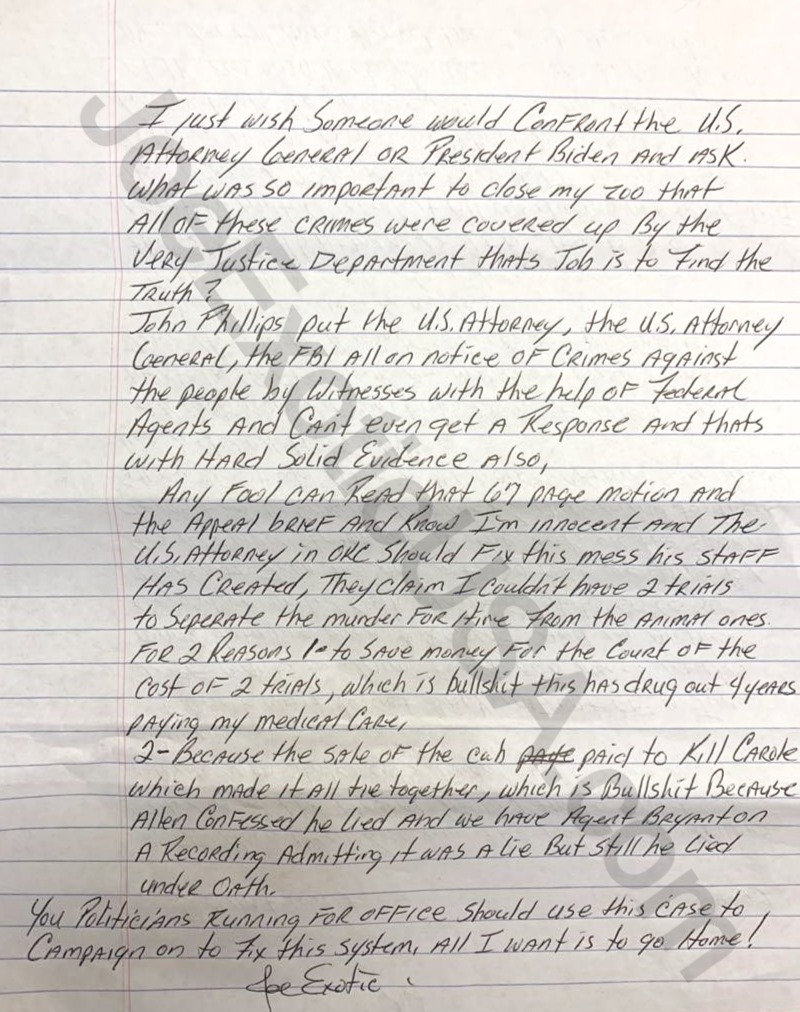 I just wish Someone would Confront the U.S.
Attorney General or President Biden and ask.
what was so important to close my zoo that
all of these crimes were covered up By the
Very Justice Department thats Job is to Find the
Truth?
John Phillips put the U.S. Attorney, the U.S. Attorney
General, the FBI all on notice of Crimes Against
the people by Witnesses with the help of Federal
Agents and Can't even get a Response and thats
with Hard Solid Evidence also,
Any Fool can Read that 67 page motion and
the Appeal brief and Know I'm innocent and The
U.S. Attorney in OKC Should Fix this mess his staff
Has Created, They claim I couldn't have 2 trials
to Seperate the murder For Hire From the Animal ones.
For 2 Reasons 1- to Save money For the Court of the
Cost of 2 trials, which is bullshit this has drug out 4 years
paying my medical Care,
2- Because the Sale of the cub paid to Kill Carole
which made it all tie together, which is Bullshit Because
Allen Confessed he lied and we have Agent Bryant on
A Recording Admitting it was a lie But Still he Lied
under Oath.
You Politicians Running For office Should use this case to
Campaign on to Fix this System, All I want is to go Home!
Joe Exotic
JoeExoticUSA.com